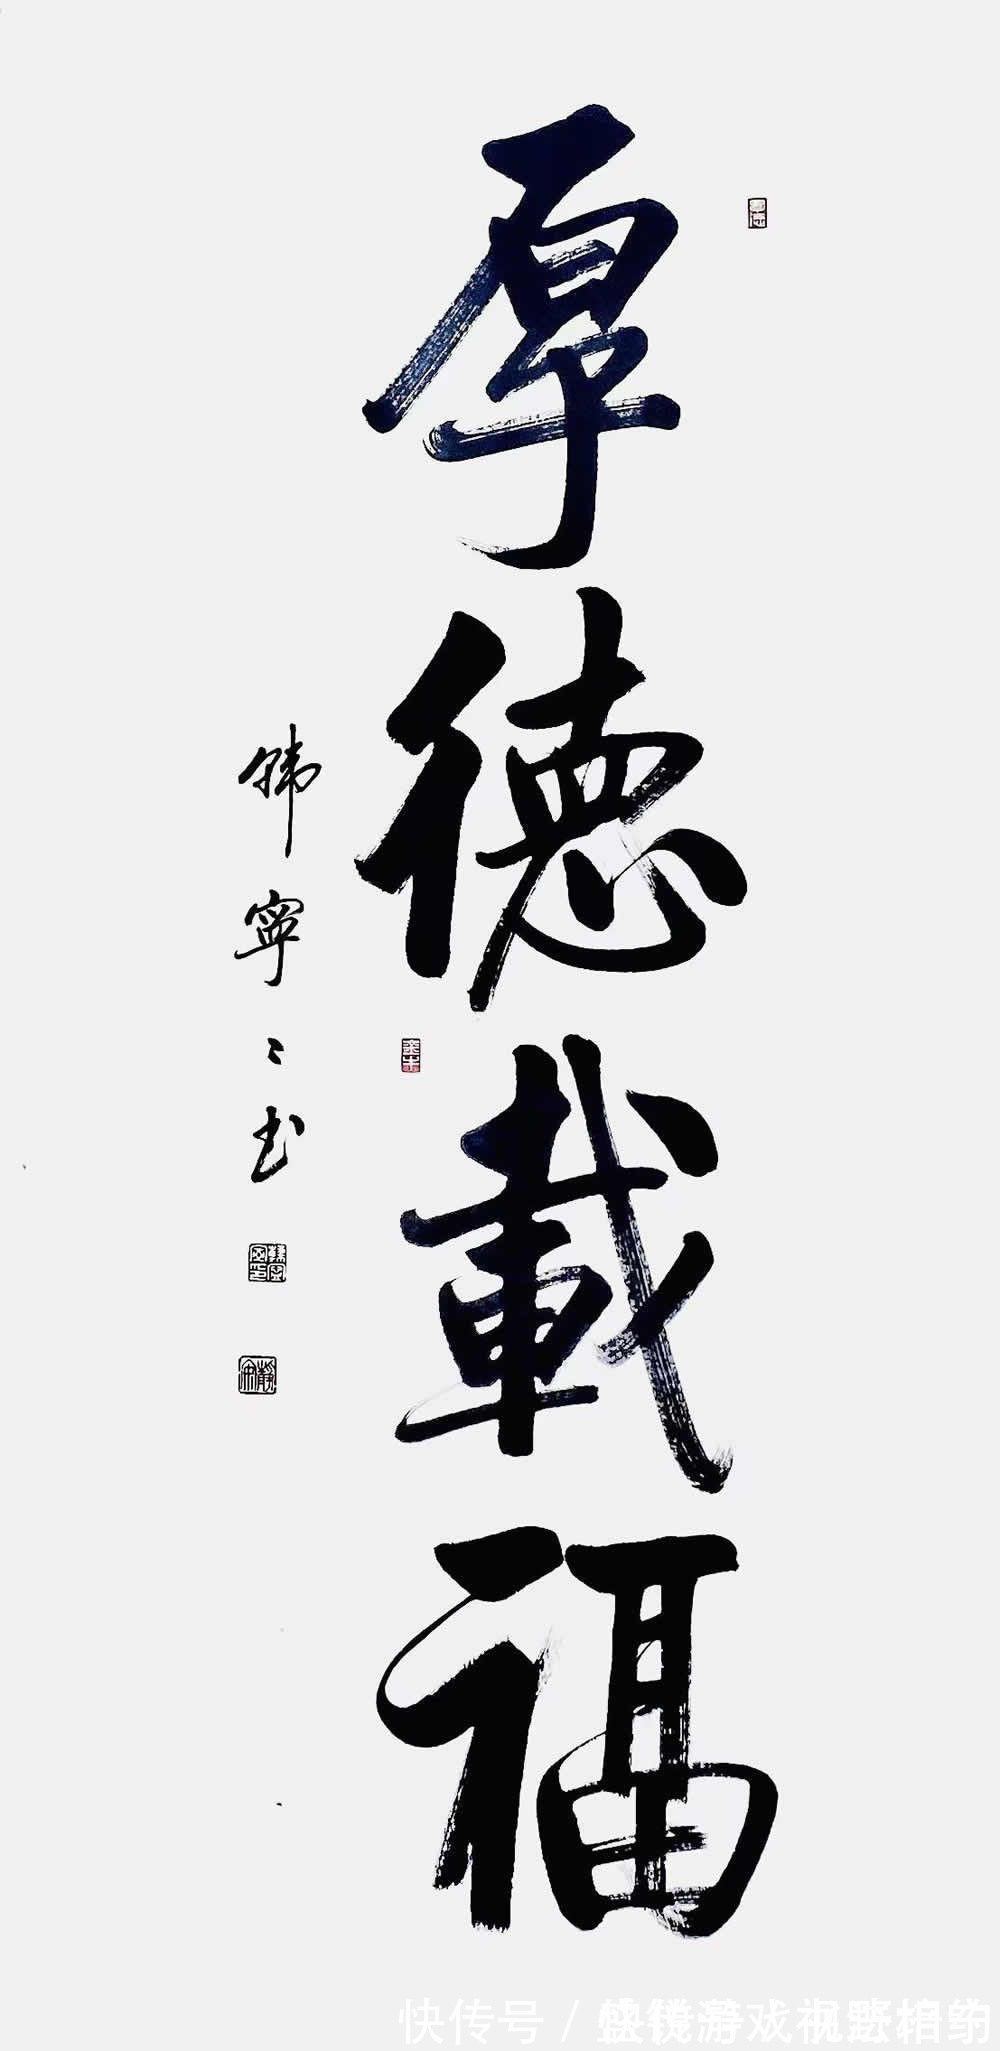 厚德載福
韩寧〻书
快传号 /